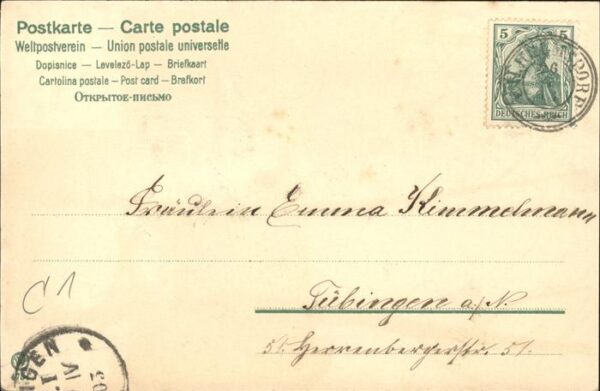 Postkarte — Carte postale
Weltpostverein — Union postale universelle
Dopisnice — Levelező-Lap — Briefkaart
Cartolina postale — Post card — Brefkort
Открытое-письмо
5 5
DEUTSCHES REICH
Fräulein Emma Kimmelmann
Tübingen a/N.
51. Herrenbergerstr. 51.
C1